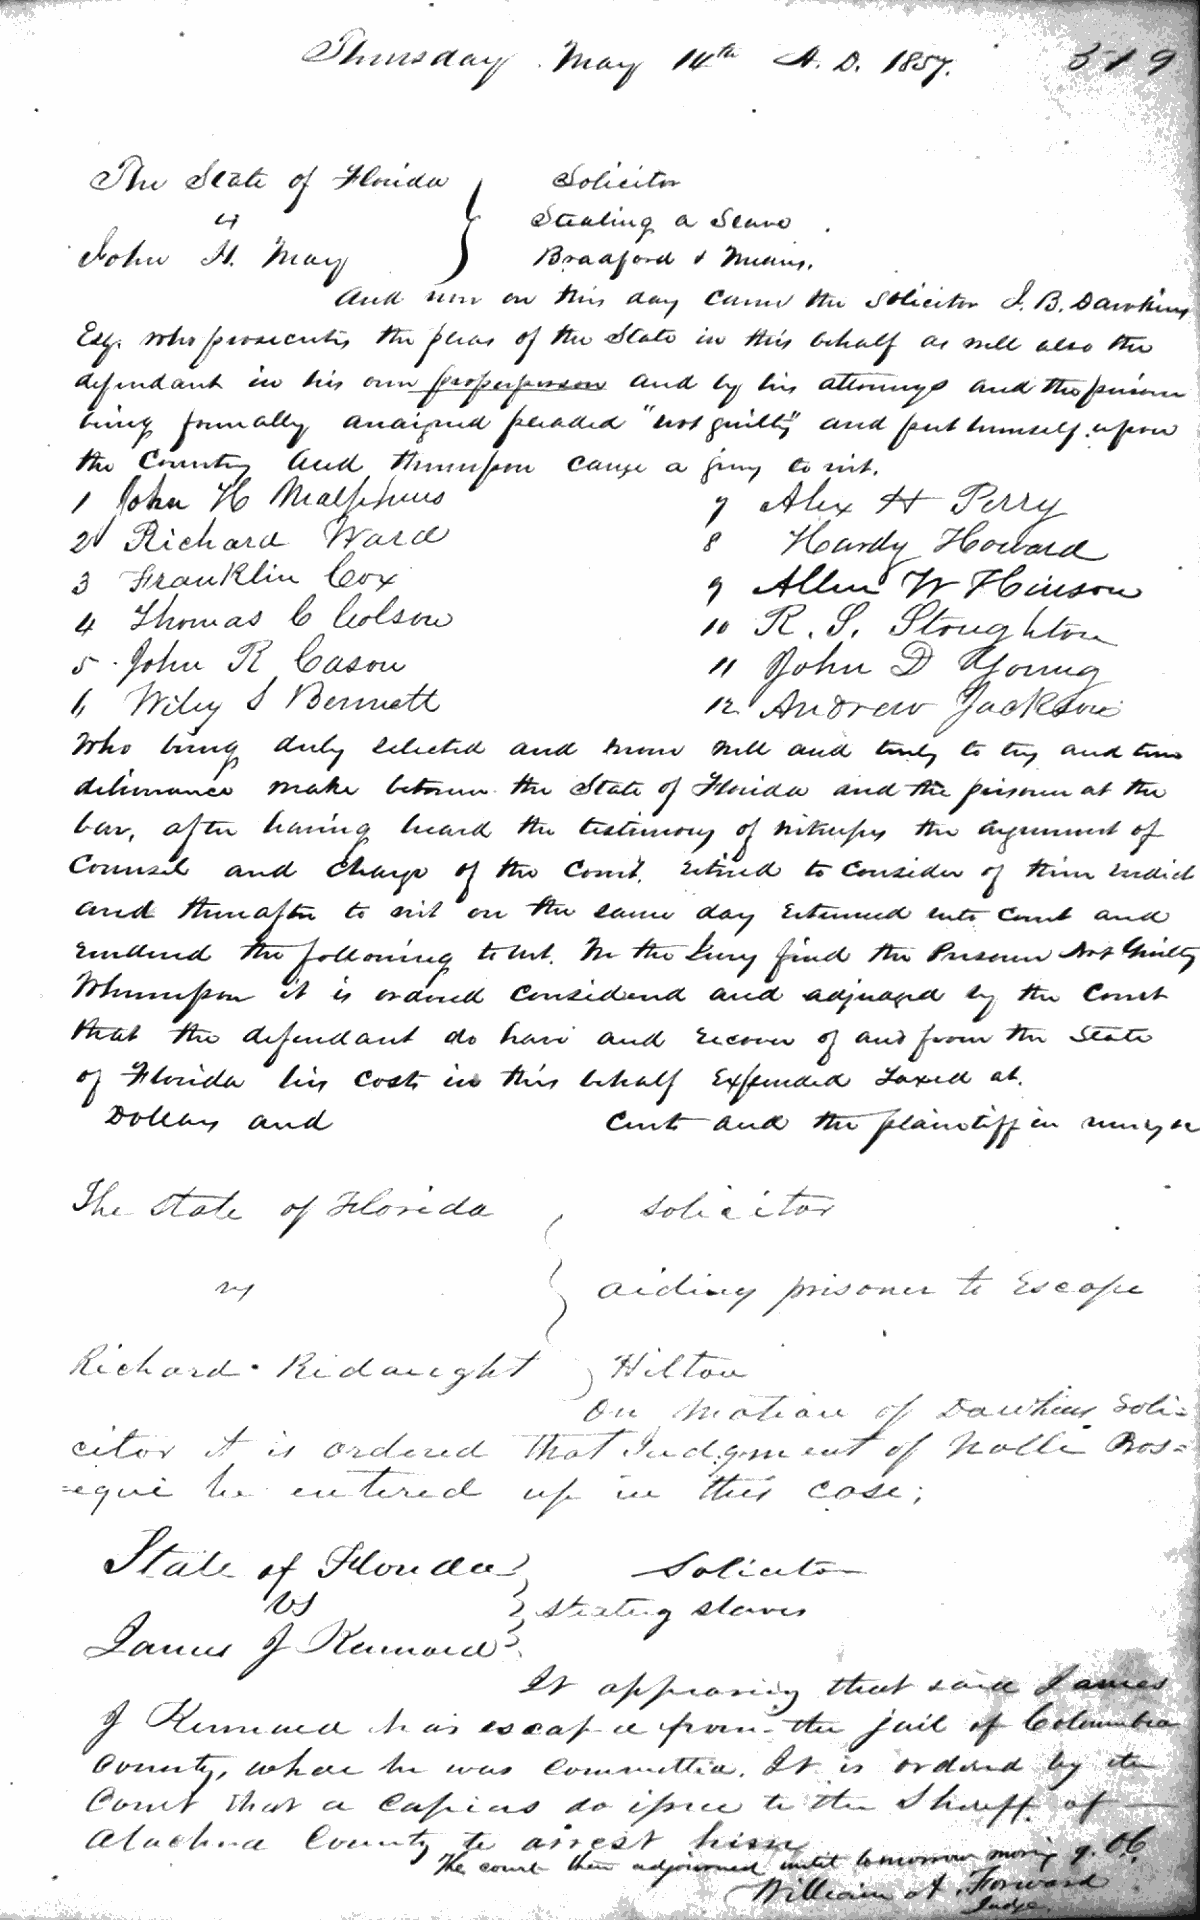 Thursday May 14th A. D. 1857. 519
The State of Florida Solicitor
vs Stealing a Slave
John H. May Bradford & Means.
And now on this day came the Solicitor J. B. Dawkins
Esq. who prosecutes the pleas of the State in this behalf as well also the
defendant in his own properperson and by his attorneys and the prisoner
being formally arraigned pleaded "not guilty" and put himself upon
the Country and thereupon came a jury to wit.
1 John H Malphurs 7 Alex H Perry
2 Richard Ward 8 Hardy Howard
3 Franklin Cox 9 Allen W Hinson
4 Thomas C Colson 10 R. S. Stoughton
5 John R Cason 11 John D Young
6 Wiley S Bennett 12 Andrew Jackson
Who being duly selected and sworn well and truly to try and true
deliverance make between the State of Florida and the prisoner at the
bar, after having heard the testimony of witnesses the argument of
Counsel and charge of the Court. retired to consider of their verdict
and thereafter to wit on the same day returned into Court and
rendered the following to wit. We the Jury find the Prisoner Not Guilty
Whereupon it is ordered considered and adjudged by the Court
that the defendant do have and recover of and from the State
of Florida his costs in this behalf Expended Taxed at.
Dollars and Cents and the plaintiff in mercy &c
The State of Florida solicitor
vs aiding prisoner to Escape
Richard Ridaught Hilton
On motion of Dawkins Soli=
citor it is ordered that Judgment of Nolli Pros=
=equi be entered up in this case;
State of Florida Solicitor
vs stealing slaves
James J Kennard
It appearing that said James
J Kennard has escaped from the jail of Columbia
County, where he was committed. It is ordered by the
Court that a Capias do issue to the Sheriff of
Alachua County to arrest him
The court then adjourned until tomorrow morning 9. OC.
William A. Forward
Judge.